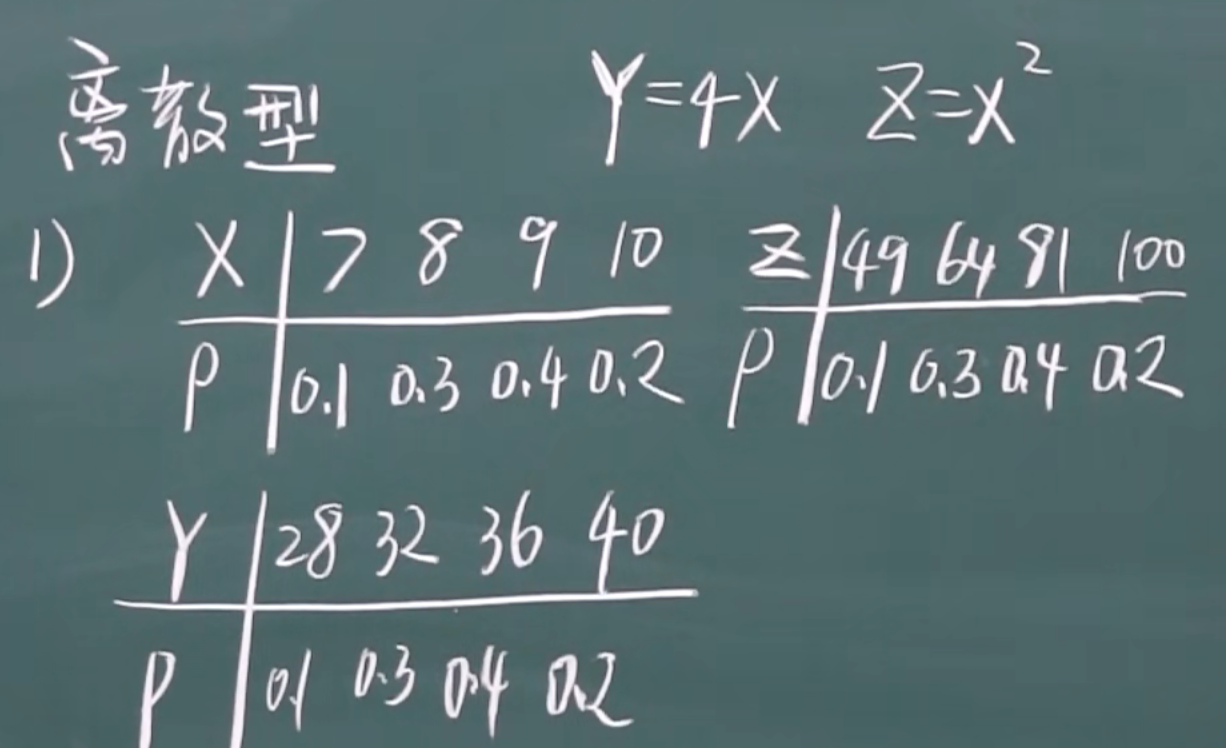 离散型 Y=4X Z=X²
1) X 7 8 9 10 Z 49 64 81 100
P 0.1 0.3 0.4 0.2 P 0.1 0.3 0.4 0.2
Y 28 32 36 40
P 0.1 0.3 0.4 0.2